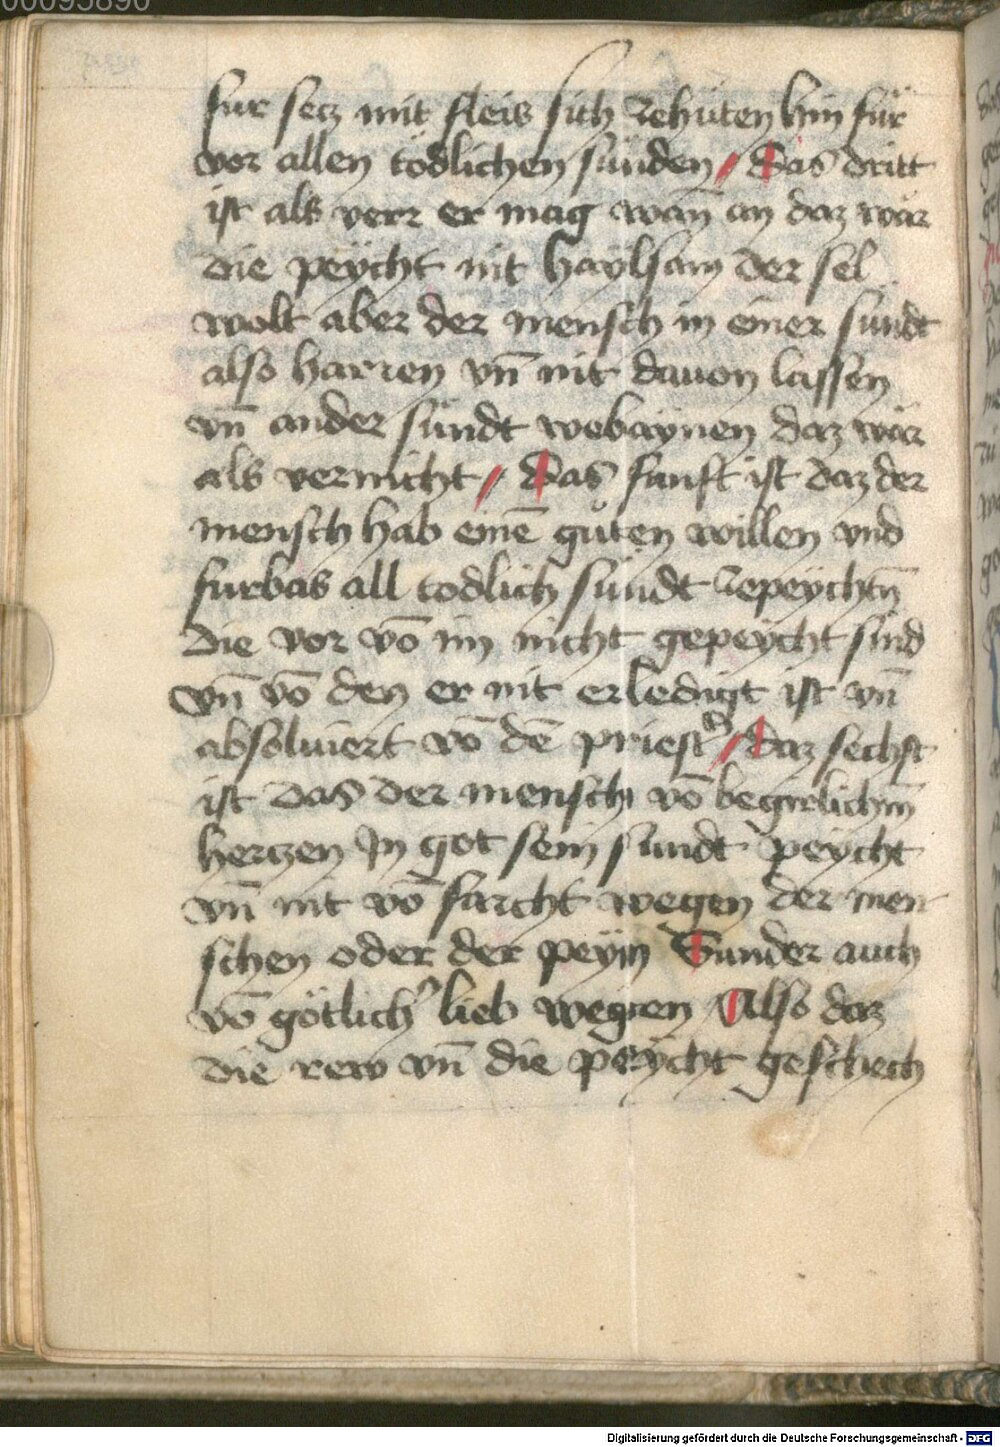 00095890
fur secz mit fleis sich zehüten hin für
vor allen tödlichen sünden // Das dritt
ist als verr er mag wañ an daz wär
die peÿcht nit haÿlsam der sel
wolt aber der mensch in einer sündt
also harren vñ nit dauon lassen
vñ ander sündt webaÿnen daz wär
als vernicht // Das funft ist daz der
mensch hab einē güten willen vnd
furbas all todlich sündt zepeÿchtn̄
die vor vō im nicht gepeÿcht sind
vñ vō den er nit erledigt ist vñ
absoluiert vō dē priestʼ // daz sechst
ist das der mensch vō begirlichm̄
herczen In got sein sundt peÿcht
vñ nit vō farcht wegen der men
schen oder der peÿn Sunder auch
vō götlichʼ lieb wegen Also daz
die rew vñ die peÿcht geschech
Digitalisierung gefördert durch die Deutsche Forschungsgemeinschaft - DFG